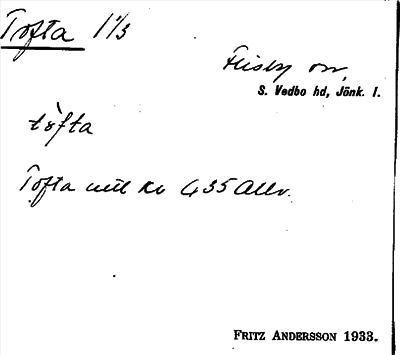 Tofta 1 1/3
Flisby sn,
S. Vedbo hd, Jönk. l.
tòfta
Tofta mtl kr 435 Allv.
FRITZ ANDERSSON 1933.